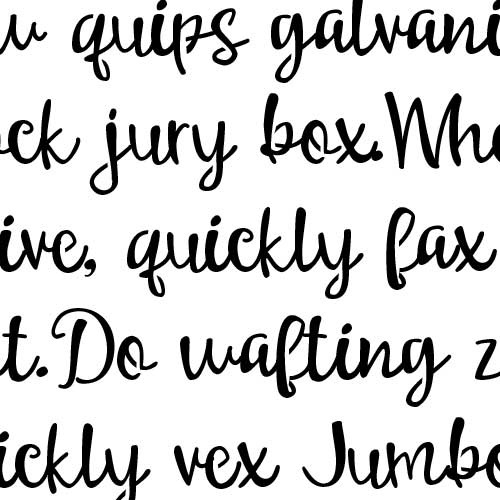 w quips galvani
ock jury box.Who
ive, quickly fax
t.Do wafting z
ickly vex Jumbo